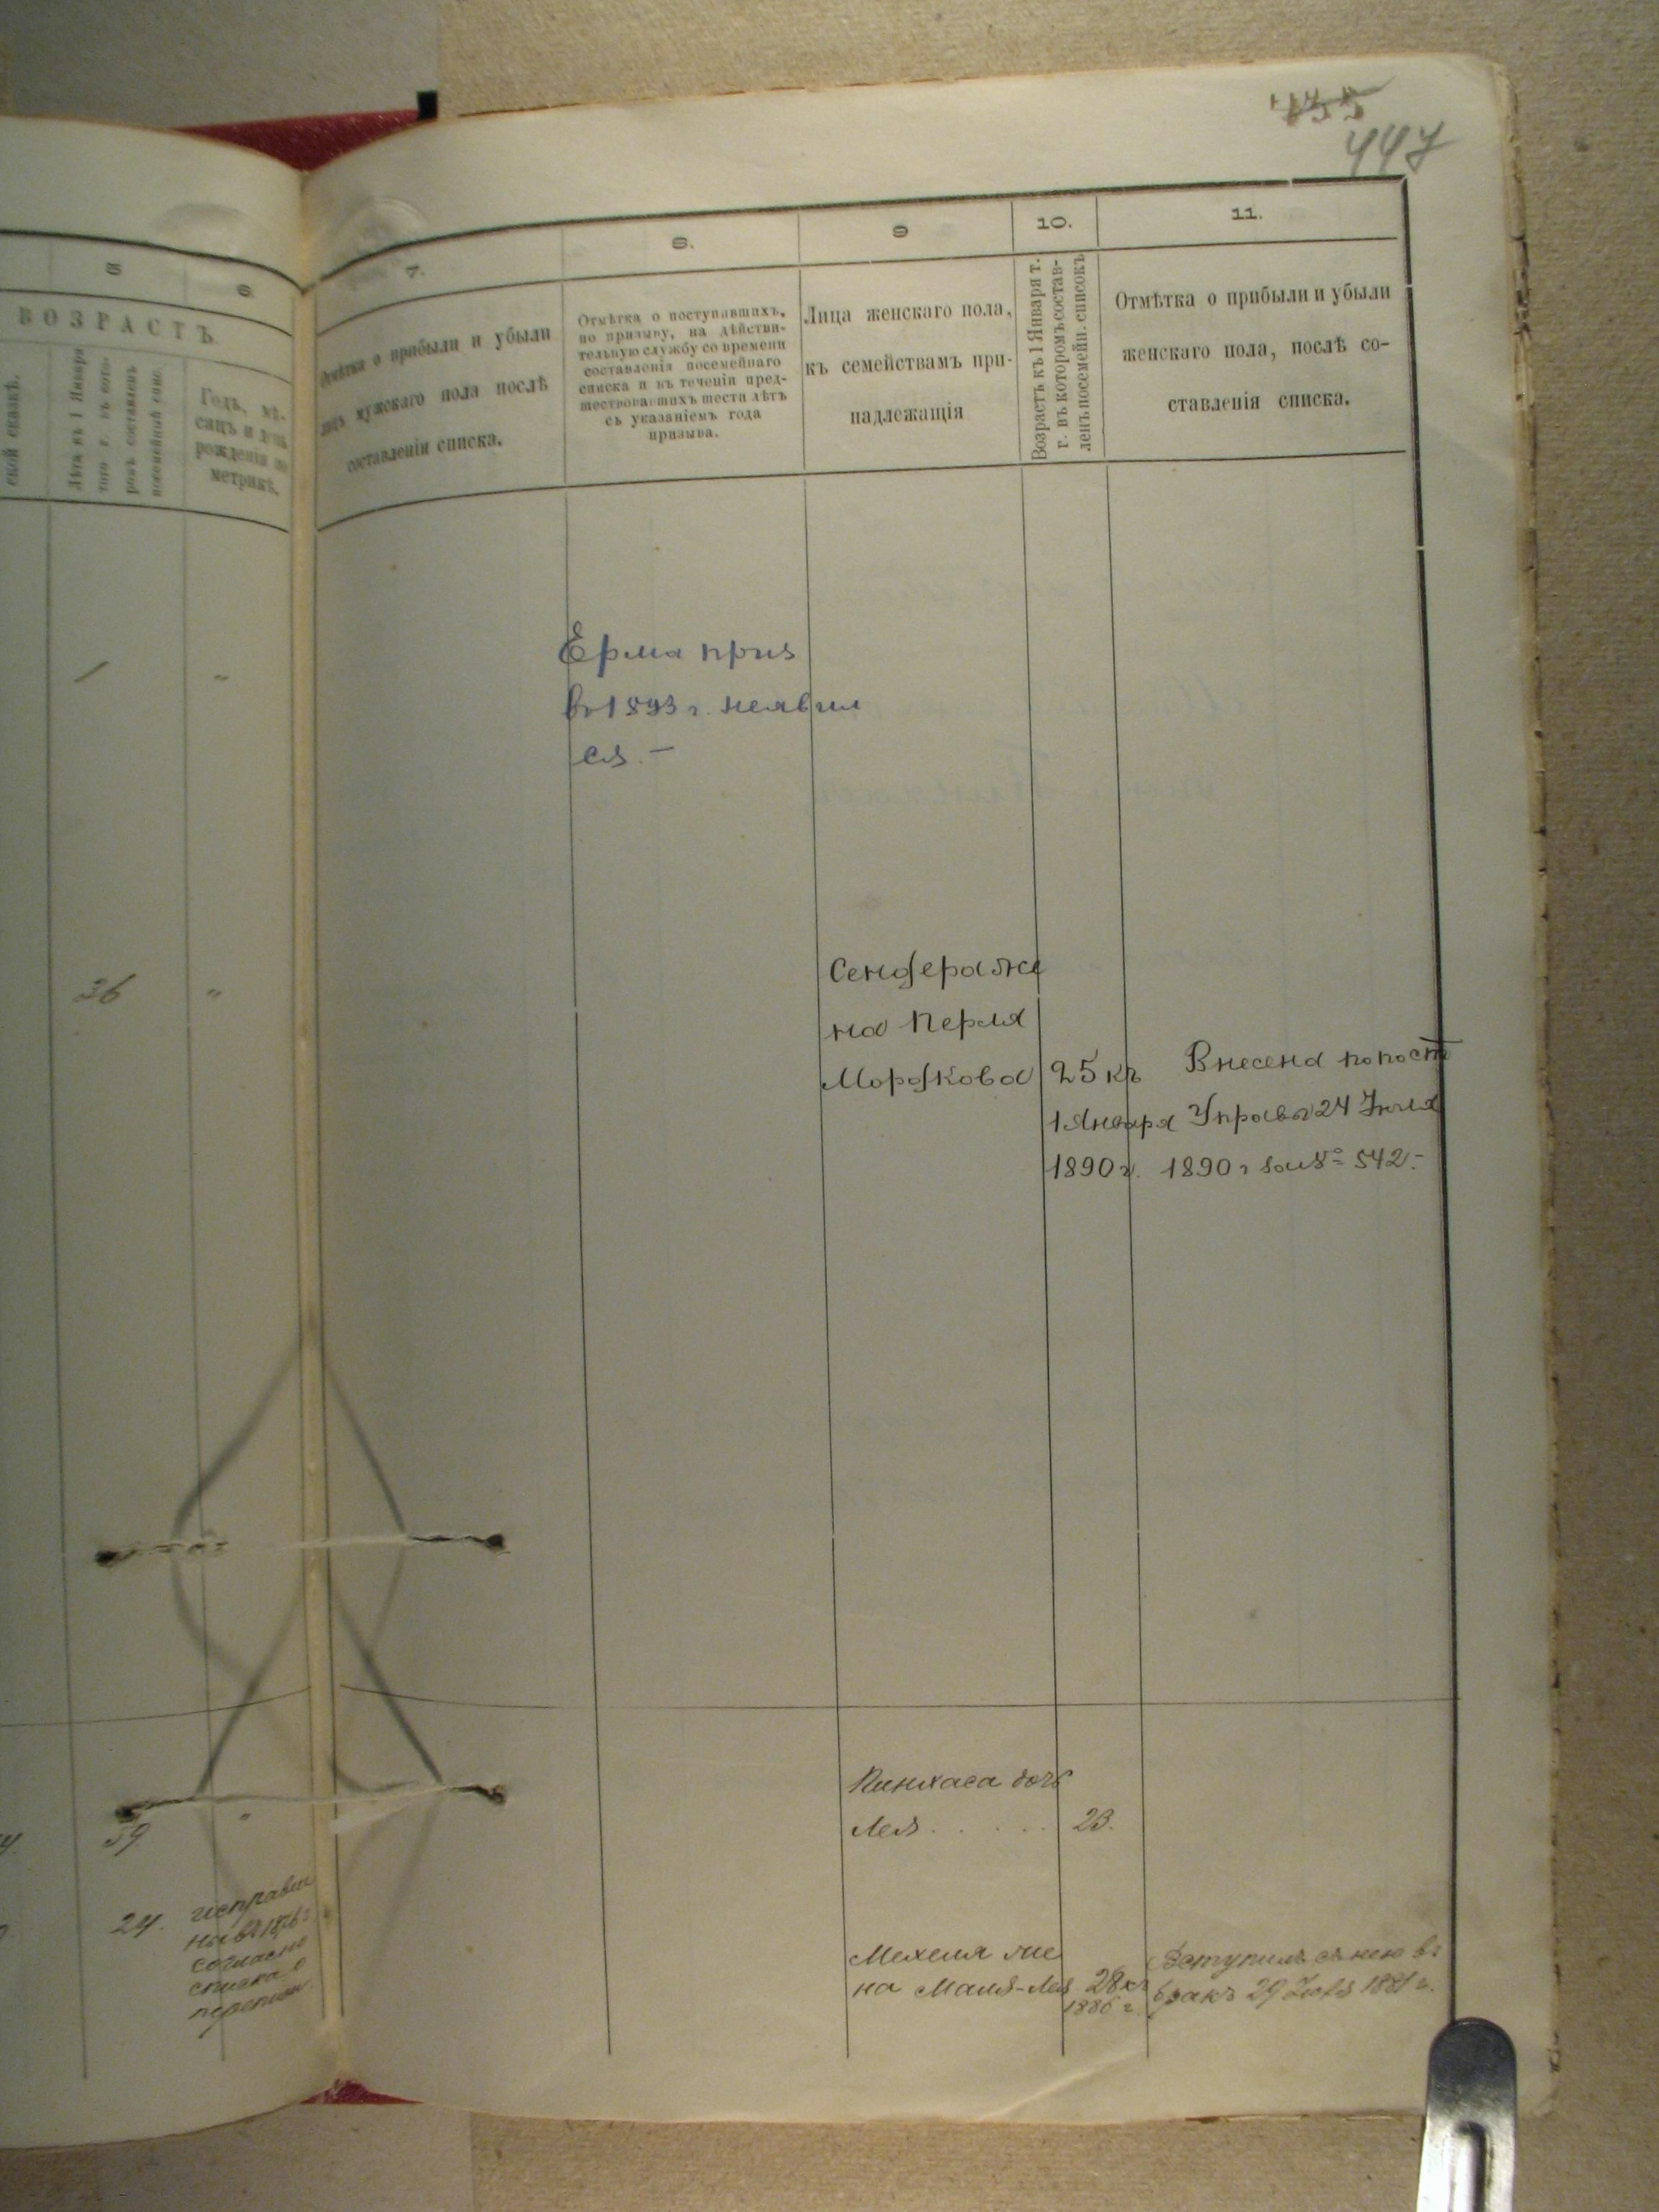 447
5
6
ВОЗРАСТЪ
ской сказкѣ.
Лѣта къ 1 Января
посемейный спис.
Годъ, мѣ-
сяцъ и день
рожденія по
метрикѣ.
7.
Отмѣтка о прибыли и убыли
лицъ мужскаго пола послѣ
составленія списка.
8.
Отмѣтка о поступившихъ,
по призыву, на дѣйстви-
тельную службу со времени
составленія посемейнаго
списка и въ теченіи пред-
шествовавшихъ шести лѣтъ
съ указаніемъ года
призыва.
9
Лица женскаго пола,
къ семействамъ при-
надлежащія
10.
Возрастъ къ 1 Января т.
г. въ которомъ состав-
ленъ посемейн. списокъ
11.
Отмѣтка о прибыли и убыли
женскаго пола, послѣ со-
ставленія списка.
Ерма приз
въ 1893 г. неявил
ся. —
36 "
Сендера же
на Перля
Моркова 25 къ
1 Января
1890 г.
Внесена по пост
Управы 24 Іюля
1890 г за № 542.-
Пинхаса дочь
Лея . . . . . 23.
39 "
24. исправле
согласно
списка о
переписи.
Мехеля же
на Маля-Лея 28 къ
1886 г.
Вступилъ съ нею въ
бракъ 29 1881 г.